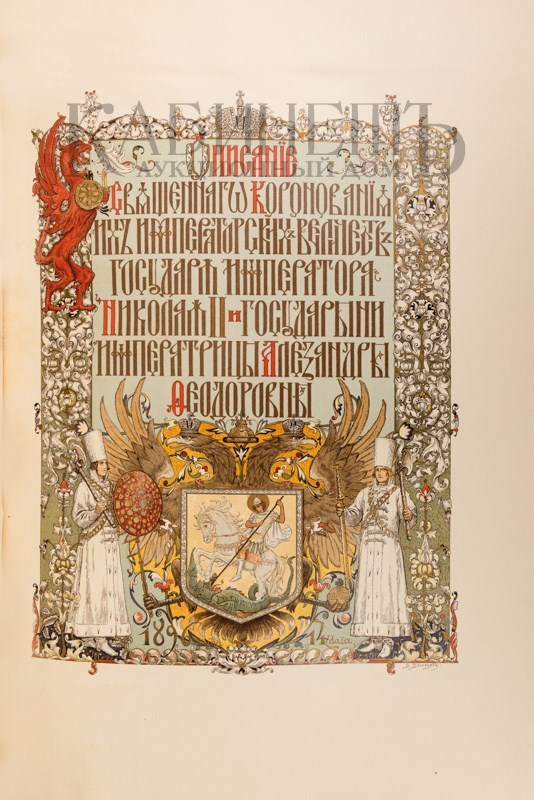 КАБИНЕТЪ
АУКЦИОННЫЙ ДОМ
Описаніе
Свѧщеннагѡ Коронованїѧ
Ихъ Императорскихъ Величествъ
Государѧ Императора
Николаѧ II и Государыни
Императрицы Алеѯандры
Ѳеодоровны
189
14 Мая